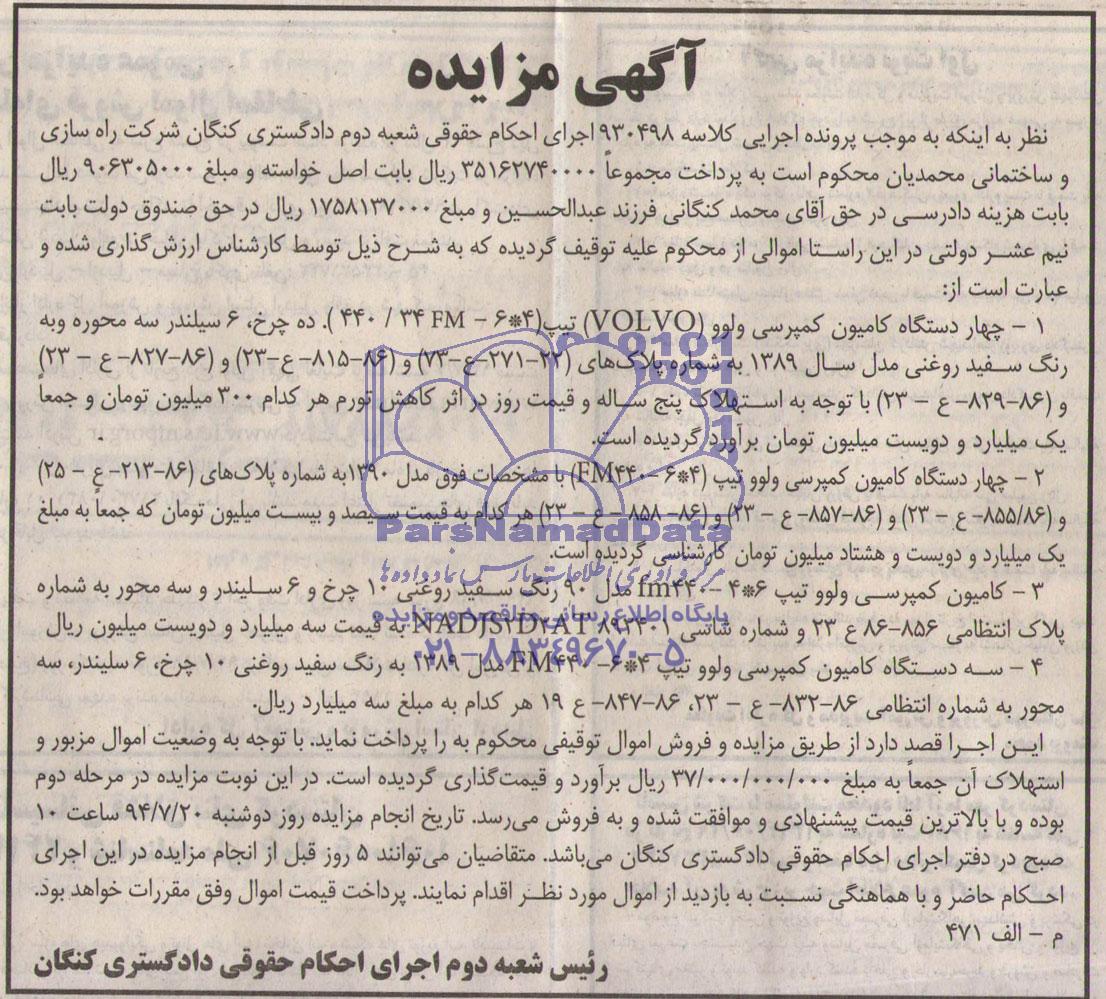 آگهی مزایده
نظر به اینکه به موجب پرونده اجرایی کلاسه ۹۳۰۴۹۸ اجرای احکام حقوقی شعبه دوم دادگستری کنگان شرکت راه سازی
و ساختمانی محمدیان محکوم است به پرداخت مجموعاً ۳۵۱۶۲۷۴۰۰۰۰ ریال بابت اصل خواسته و مبلغ ۹۰۶۳۰۵۰۰۰ ریال
بابت هزینه دادرسی در حق آقای محمد کنگانی فرزند عبدالحسین و مبلغ ۱۷۵۸۱۳۷۰۰۰ ریال در حق صندوق دولت بابت
نیم عشر دولتی در این راستا اموالی از محکوم علیه توقیف گردیده که به شرح ذیل توسط کارشناس ارزش گذاری شده و
عبارت است از:
۱ – چهار دستگاه کامیون کمپرسی ولوو (VOLVO) تیپ(۴*۶ – FM ۳۴ / ۴۴۰ ). ده چرخ، ۶ سیلندر سه محوره وبه
رنگ سفید روغنی مدل سال ۱۳۸۹ به شماره پلاک‌های (۲۲–۲۷۱–ع–۷۳) و (۸۶–۸۱۵– ع–۲۳) و (۸۶–۸۲۷– ع – ۲۳)
و (۸۶–۸۲۹– ع – ۲۳) با توجه به استهلاک پنج ساله و قیمت روز در اثر کاهش تورم هر کدام ۳۰۰ میلیون تومان و جمعاً
یک میلیارد و دویست میلیون تومان برآورد گردیده است.
۲ – چهار دستگاه کامیون کمپرسی ولوو تیپ (۴*۶ –FM۴۴۰) با مشخصات فوق مدل ۱۳۹۰به شماره پلاک‌های (۸۶–۲۱۳– ع – ۲۵)
و (۸۵۵/۸۶– ع – ۲۳) و (۸۶–۸۵۷– ع – ۲۳) و (۸۶– ۸۵۸ – ع – ۲۳) هر کدام به قیمت سیصد و بیست میلیون تومان که جمعاً به مبلغ
یک میلیارد و دویست و هشتاد میلیون تومان کارشناسی گردیده است.
۳ – کامیون کمپرسی ولوو تیپ ۶*۴ –fm۴۴۰ مدل ۹۰ رنگ سفید روغنی ۱۰ چرخ و ۶ سلیندر و سه محور به شماره
پلاک انتظامی ۸۵۶–۸۶ ع ۲۳ و شماره شاسی NADJS۲D۲AT۸۹۲۴۰۱ به قیمت سه میلیارد و دویست میلیون ریال
۴ – سه دستگاه کامیون کمپرسی ولوو تیپ ۴*۶– FM۴۴۰ مدل ۱۳۸۹ به رنگ سفید روغنی ۱۰ چرخ، ۶ سلیندر، سه
محور به شماره انتظامی ۸۶–۸۳۲– ع – ۲۳، ۸۶–۸۴۷– ع ۱۹ هر کدام به مبلغ سه میلیارد ریال.
این اجرا قصد دارد از طریق مزایده و فروش اموال توقیفی محکوم به را پرداخت نماید. با توجه به وضعیت اموال مزبور و
استهلاک آن جمعاً به مبلغ ۳۷/۰۰۰/۰۰۰/۰۰۰ ریال برآورد و قیمت‌گذاری گردیده است. در این نوبت مزایده در مرحله دوم
بوده و با بالاترین قیمت پیشنهادی و موافقت شده و به فروش می‌رسد. تاریخ انجام مزایده روز دوشنبه ۹۴/۷/۲۰ ساعت ۱۰
صبح در دفتر اجرای احکام حقوقی دادگستری کنگان می‌باشد. متقاضیان می‌توانند ۵ روز قبل از انجام مزایده در این اجرای
احکام حاضر و با هماهنگی نسبت به بازدید از اموال مورد نظر اقدام نمایند. پرداخت قیمت اموال وفق مقررات خواهد بود.
م – الف ۴۷۱
رئیس شعبه دوم اجرای احکام حقوقی دادگستری کنگان
ParsNamadData
پایگاه اطلاع رسانی مناقصه و مزایده
۰۲۱–۸۸۳۴۹۶۷۰–۵